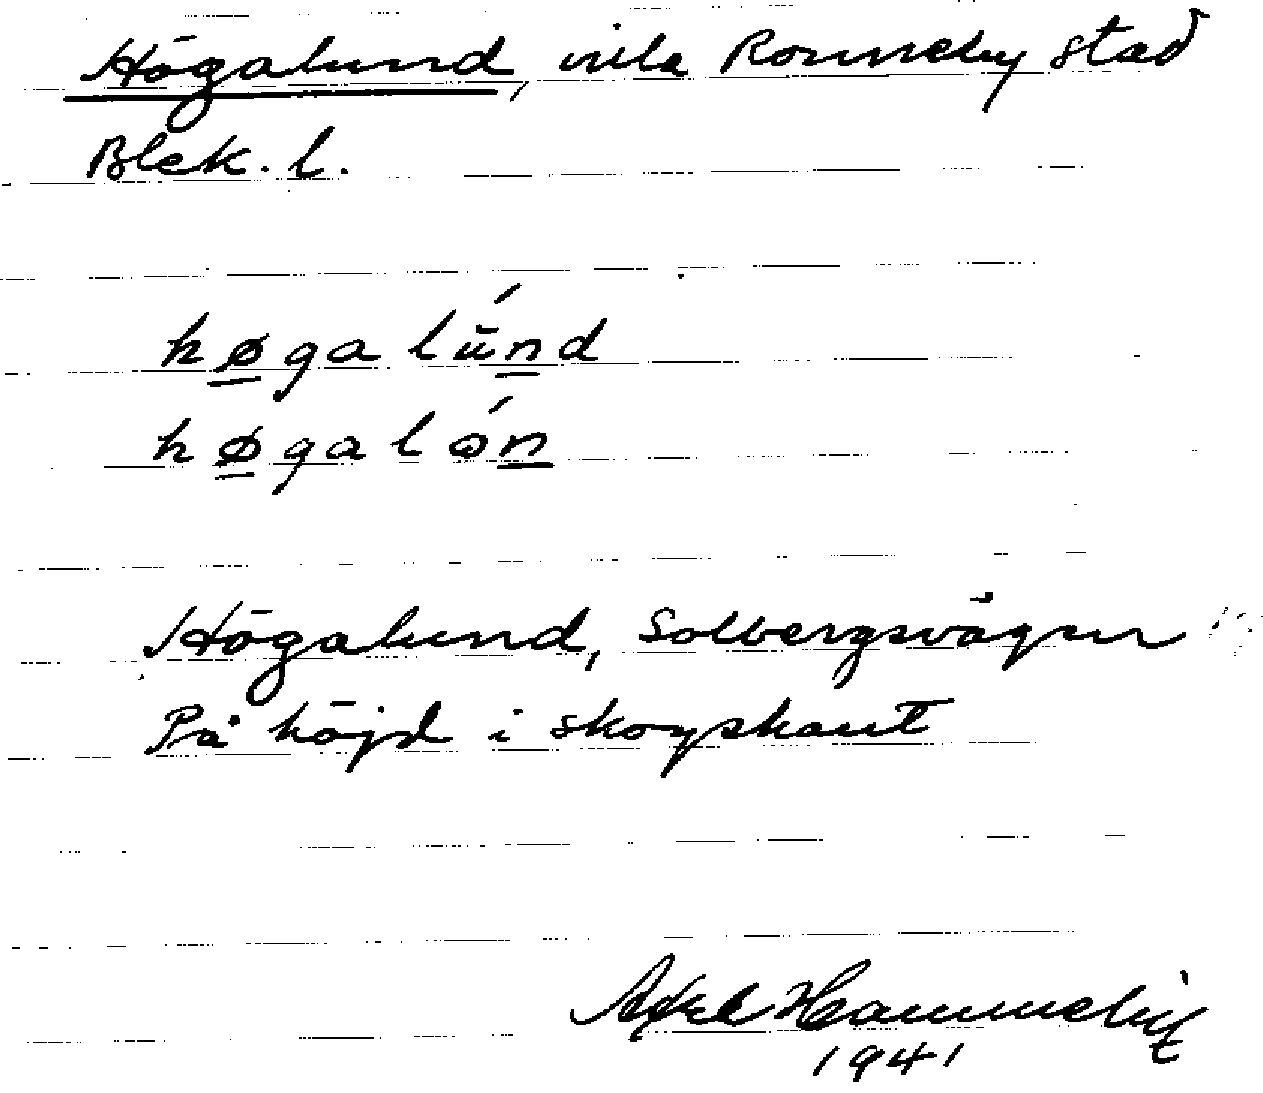 Högalund, villa Ronneby stad
Blek. l.
høgalund
høgalon
Högalund, Solbergsvägen
På höjd i skogskant
Axel
1941